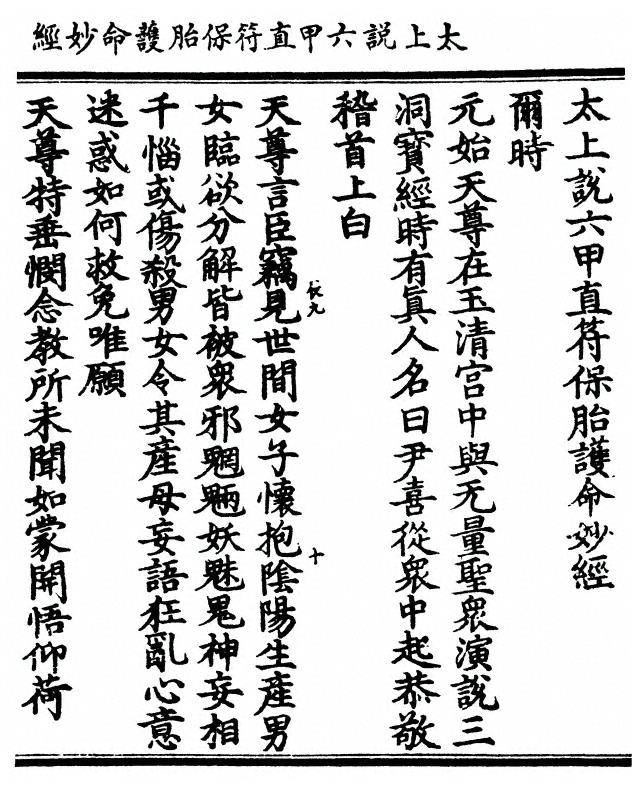 太上説六甲直符保胎護命妙經
太上說六甲直符保胎護命妙經
爾時
元始天尊在玉清宫中與无量聖衆演說三
洞寳經時有眞人名曰尹喜從衆中起恭敬
稽首上白
天尊言臣竊見世間女子懷抱陰陽生產男
女臨欲分解皆被衆邪魍魎妖魅鬼神妄相
千惱或傷殺男女令其產母妄語狂亂心意
迷惑如何救免唯願
天尊特垂憫念教所未聞如蒙開悟仰荷
十